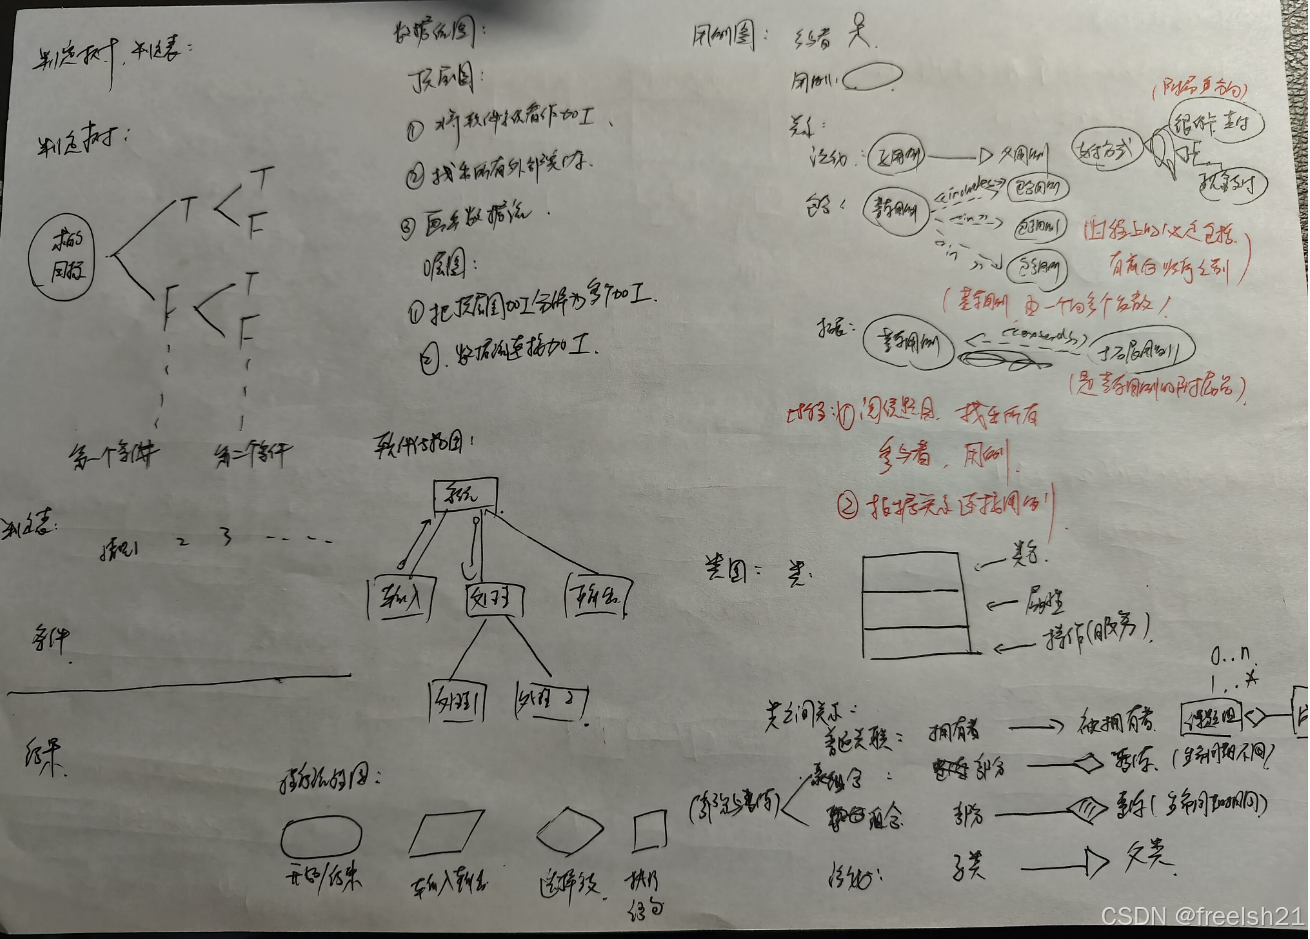 判定树、判定表：
判定树：
求的
目标
T
T
F
F
T
F
第一个条件
第二个条件
判定表：
情况1 2 3 ----
条件
结果
数据流图：
顶层图：
① 将软件系统看作加工．
② 找出所有外部实体．
③ 画出数据流．
0层图：
① 把顶层图加工分解为多个加工．
②．数据流连接加工．
软件结构图：
系统
输入
处理
输出
处理1
处理2
程序流程图：
开始/结束
输入输出
选择
执行
语句
用例图： 参与者
用例：
关系：
泛化：
子用例
父用例
支付方式
银行卡支付
包含：
基本用例
<include>
包含用例
包含用例
包含用例
(基本用例 由一个或多个
拓展：
基本用例
拓展用例
(是基本用例的附属品)
① 阅读题目，找出所有
参与者，用例．
② 根据关系连接用例
类图： 类：
类名
属性
操作(服务)
0..n
1..*
类之间关系：
普通关联： 拥有者
被拥有者
部分
整体 (生命周期不同)
组合
部分
整体 (生命周期相同)
泛化： 子类
父类
CSDN @freelsh21